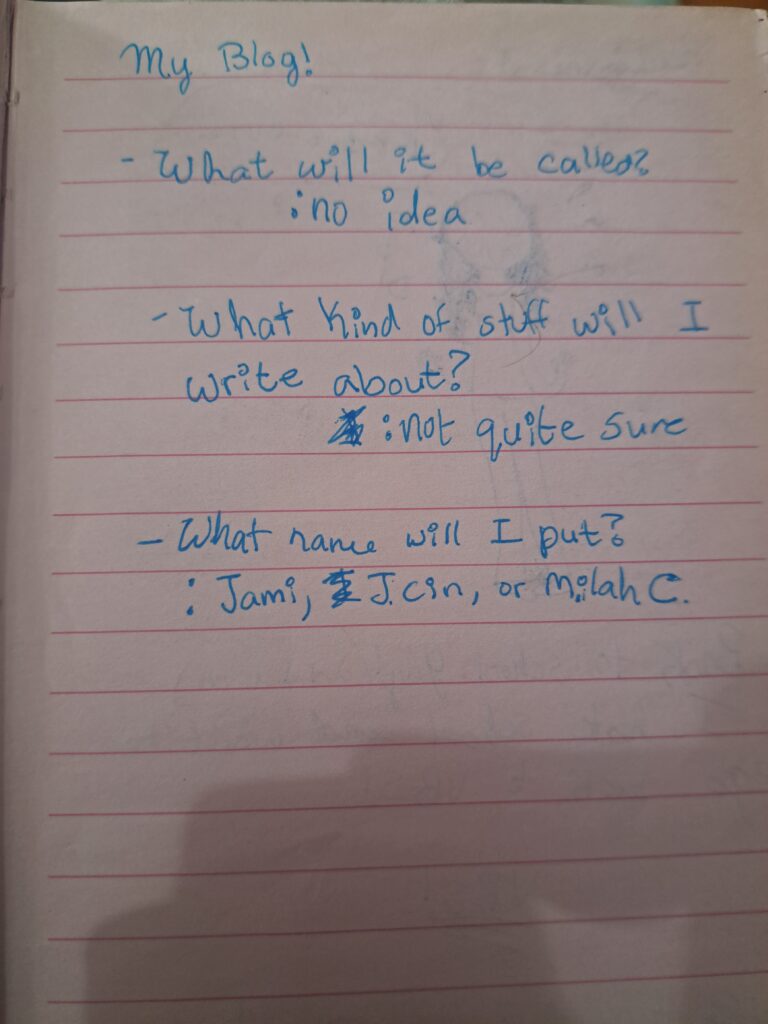 My Blog!
- What will it be called?
: no idea
- What kind of stuff will I
write about?
: not quite sure
- What name will I put?
: Jami, J. Cin, or Milah C.